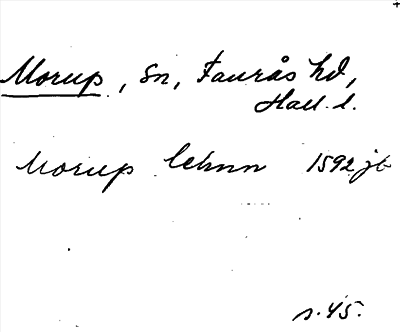 Morup, sn, Faurås hd,
Hall. l.
Morup lehnn 1592 jb
s. 45.